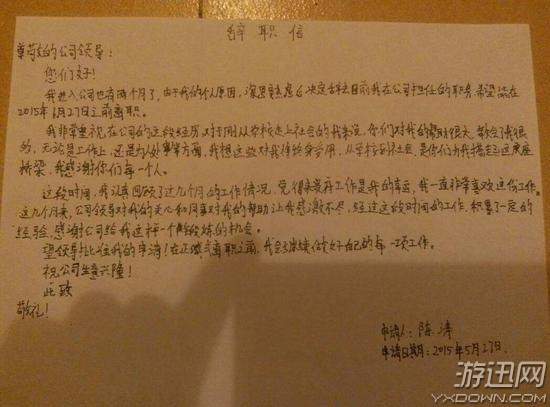 辞职信
尊敬的公司领导:
您们好!
我进入公司也有两个月了,由于我的个人原因,深思熟虑后决定辞去目前我在公司担任的职务,希望能在
2015年6月27日之前离职。
我非常重视,在公司的这段经历,对于刚从学校走上社会的我来说,你们对我的帮助很大,教会了我很
的,无论是工作上,还是为人处事等方面,我想这些对我终身受用,从学校到社会,是你们为我搭起这座
桥梁,我感谢你们每一个人。
这段时间,我认真回顾了这几个月的工作情况,觉得来工作是我的幸运,我一直非常喜欢这份工作。
这几个月来,公司领导对我的关心和同事对我的帮助让我感激不尽,经过这段时间的工作,积累了一定的
经验,感谢公司给我这样一个锻炼的机会。
望领导批准我的申请!在正式离职之前,我会继续做好自己的每一项工作。
祝公司生意兴隆!
此致
敬礼!
申请人:陈涛
申请日期:2015年5月27日.
游迅网
YXDOWN.COM